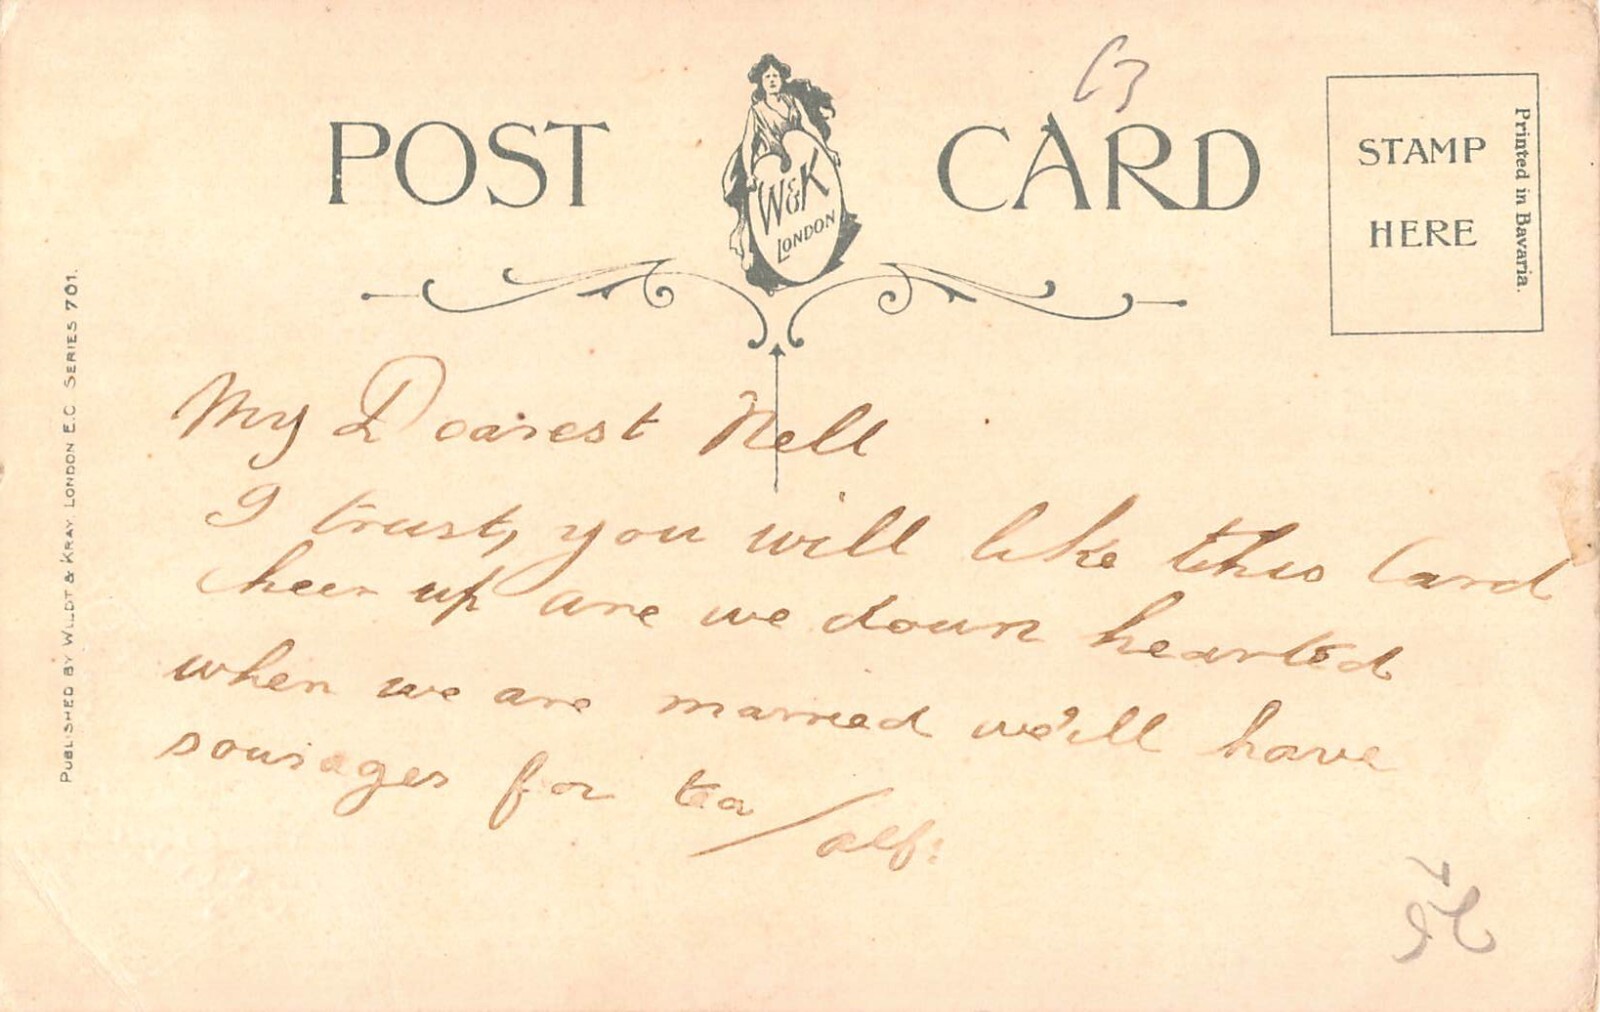 POST CARD
W&K
LONDON
STAMP
HERE
Printed in Bavaria.
PUBLISHED BY WILDT & KRAY, LONDON E.C. SERIES 761.
My Dearest Nell
I trust, you will like this Card
cheer up are we down hearted
when we are married we'll have
sousages for tea / Alf: